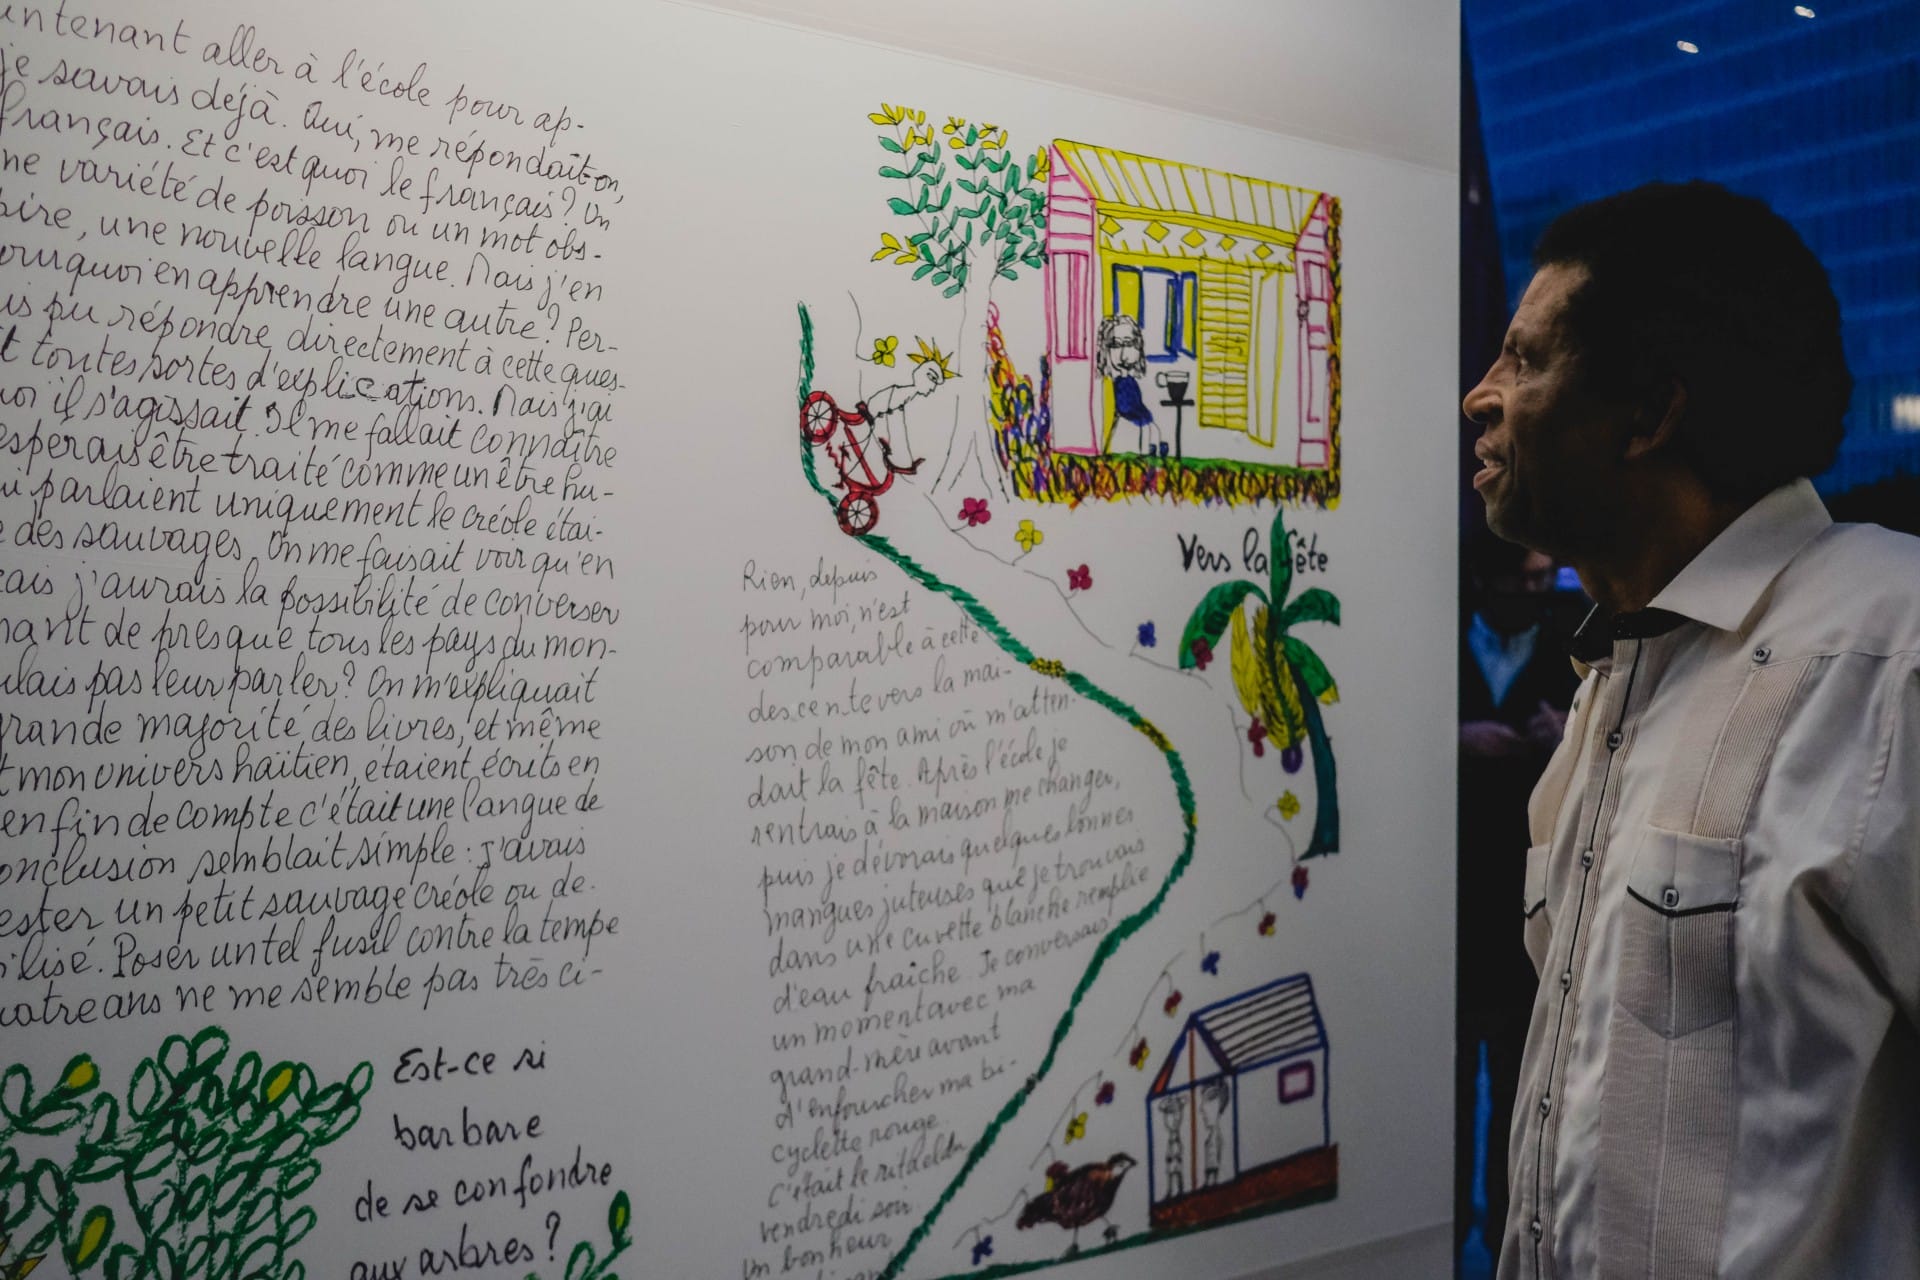 intenant aller à l'école pour ap-
je savais déjà. Oui, me répondait-on,
français. Et c'est quoi le français? Un
ne variété de poisson ou un mot obs-
oire, une nouvelle langue. Mais j'en
ourquoi en apprendre une autre? Per-
is pu répondre directement à cette ques-
t toutes sortes d'explications. Mais j'ai
uoi il s'agissait. Il me fallait connaître
esperais être traité comme un être hu-
ui parlaient uniquement le créole étai-
e des sauvages. On me faisait voir qu'en
çais j'aurais la possibilité de converser
nant de presque tous les pays du mon-
ulais pas leur parler? On m'expliquait
grande majorité des livres, et même
t mon univers haïtien, étaient écrits en
enfin de compte c'était une langue de
onclusion semblait simple: j'avais
ester un petit sauvage créole ou de-
ilisé. Poser un tel fusil contre la tempe
uatre ans ne me semble pas très ci-
Est-ce si
barbare
de se confondre
aux arbres?
Vers la fête
Rien, depuis
pour moi, n'est
comparable à cette
descente vers la mai-
son de mon ami où m'atten-
dait la fête. Après l'école je
rentrais à la maison me changer,
puis je dévorais quelques bonnes
mangues juteuses que je trouvais
dans une cuvette blanche remplie
d'eau fraîche. Je conversais
un moment avec ma
grand-mère avant
d'enfourcher ma bi-
cyclette rouge.
C'était le rituel du
vendredi soir.
Un bonheur